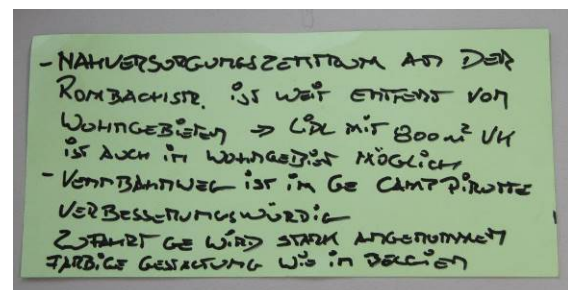 - NAHVERSORGUNGSZENTRUM AN DER
ROMBACHSTR. iST WEiT ENTFERNT VON
WOHNGEBiETEN → LiDL MiT 800 m² VK
iST AUCH iM WOHNGEBiET MÖGLiCH
- VENNBAHNWEG iST iM GE CAMP PiROTTE
VERBESSERUNGSWÜRDiG
ZUFAHRT GE WiRD STARK ANGENOMMEN
FARBiGE GESTALTUNG WiE iN BELGiEN